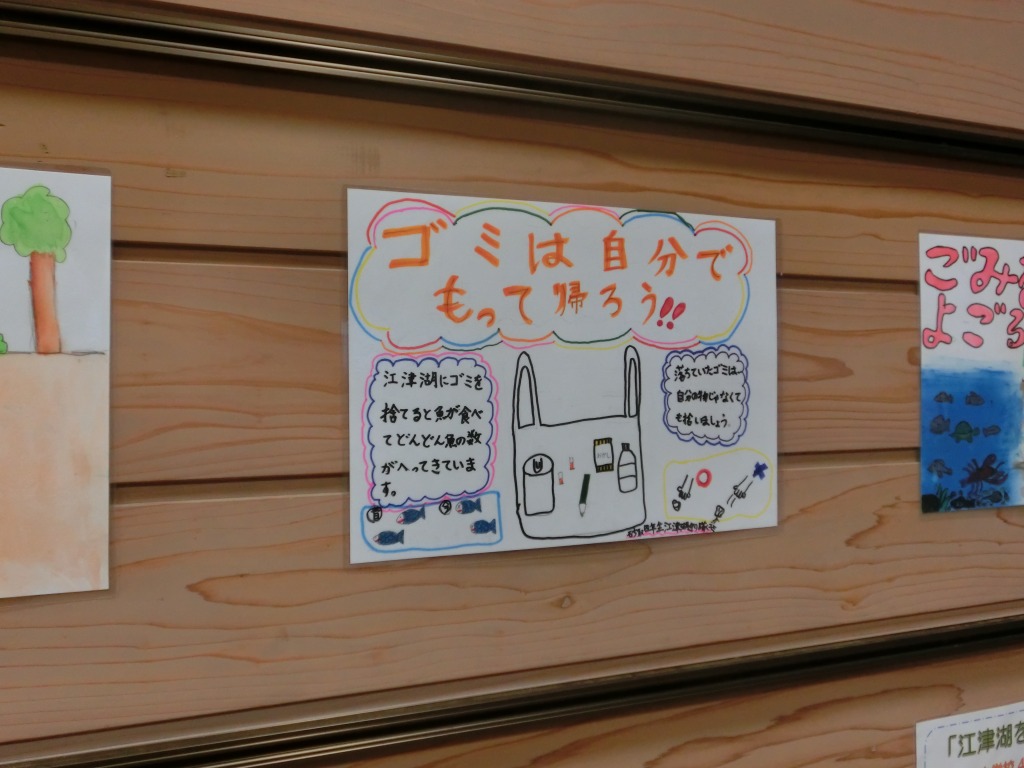 ゴミは自分で
もって帰ろう!!
江津湖にゴミを
捨てると魚が食べ
てどんどん魚の数
がへってきていま
す。
落ちていたゴミは
自分のじゃなくて
も拾いましょう。
ごみ
よごろ
「江津湖を